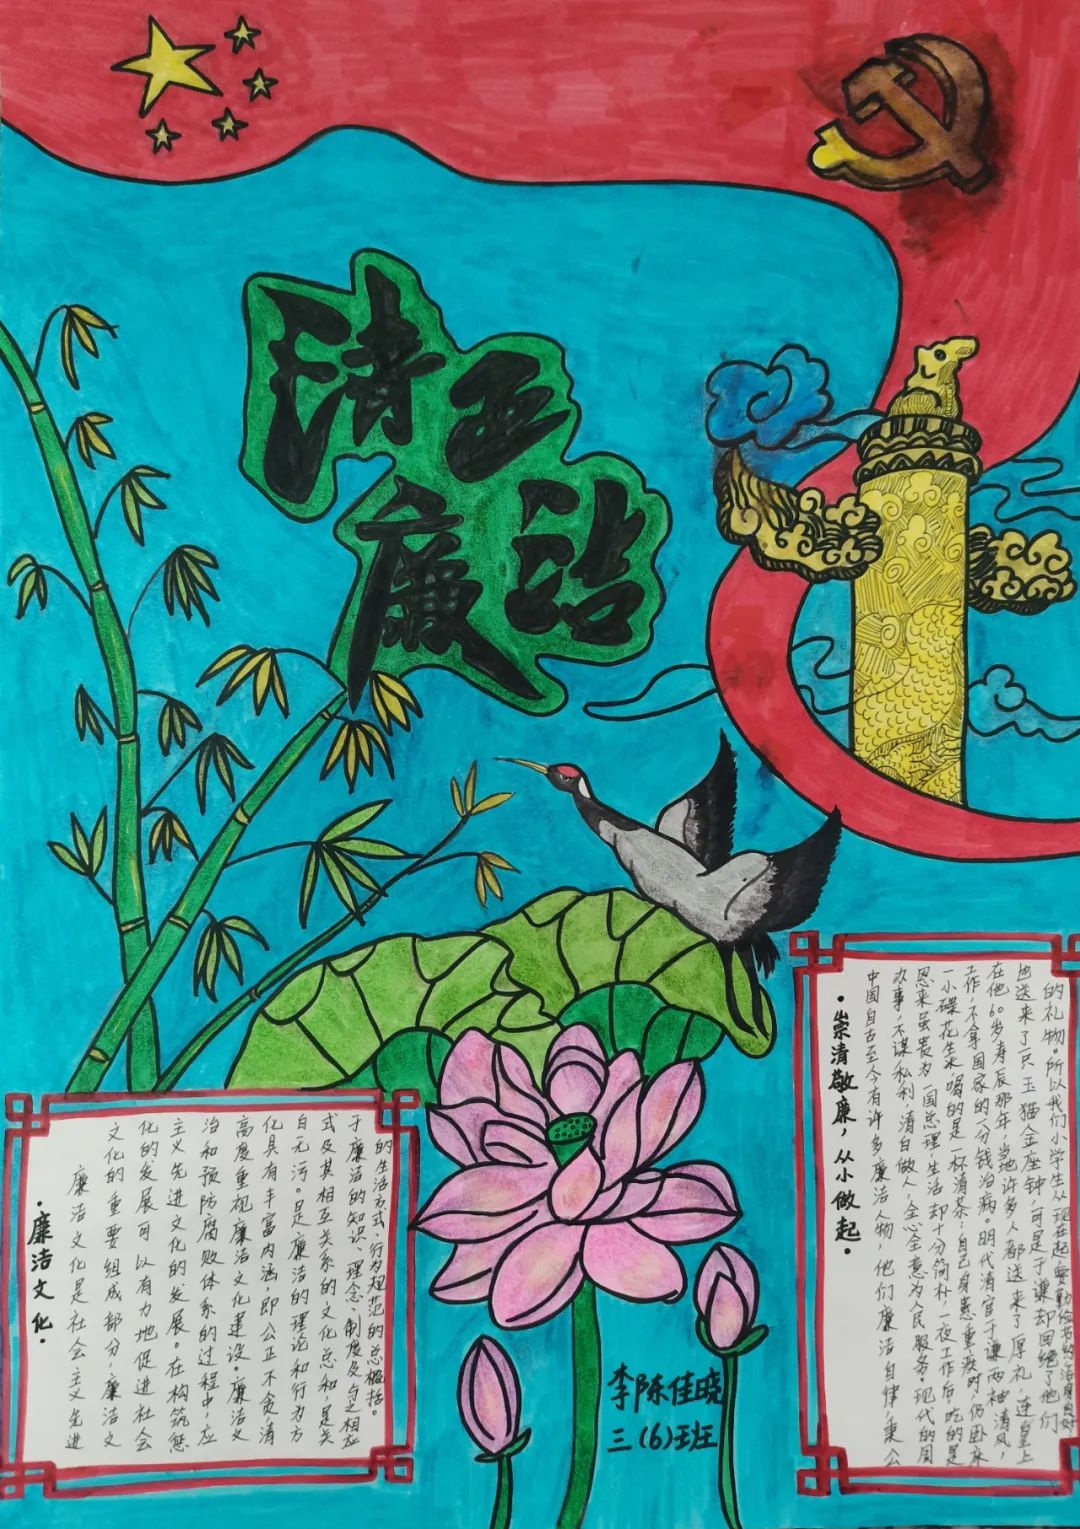 清正
廉洁
·廉洁文化·
廉洁文化是社会主义先进
文化的重要组成部分,廉洁文
化的发展可以有力地促进社会
主义先进文化的发展。在构筑惩
治和预防腐败体系的过程中,应
高度重视廉洁文化建设。廉洁文
化具有丰富内涵,即公正不贪,清
自无污。是廉洁的理论和行为方
式及其相互关系的文化总和,是关
于廉洁的知识、理念、制度及与之相应
的生活方式、行为规范的总概括。
·崇清敬廉,从小做起·
中国自古至今有许多廉洁人物,他们廉洁自律,秉公
办事,不谋私利,清白做人,全心全意为人民服务。现代的周
恩来虽贵为一国总理,生活却十分简朴,一夜工作后,吃的是
一小碟花生米,喝的是一杯清茶;自己身患重疾时,仍卧床
工作,不拿国家的一分钱治病。明代清官于谦两袖清风,
在他60岁寿辰那年,当地许多人都送来了厚礼,连皇上
也送来了一只玉猫金座钟,可是于谦却回绝了他们
的礼物。所以我们小学生从现在起要勤俭节约,洁身自好
李陈佳晓
三(6)班